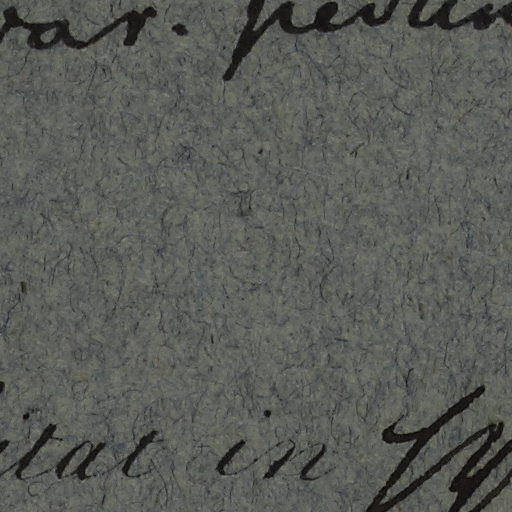 var. pedun
itat in